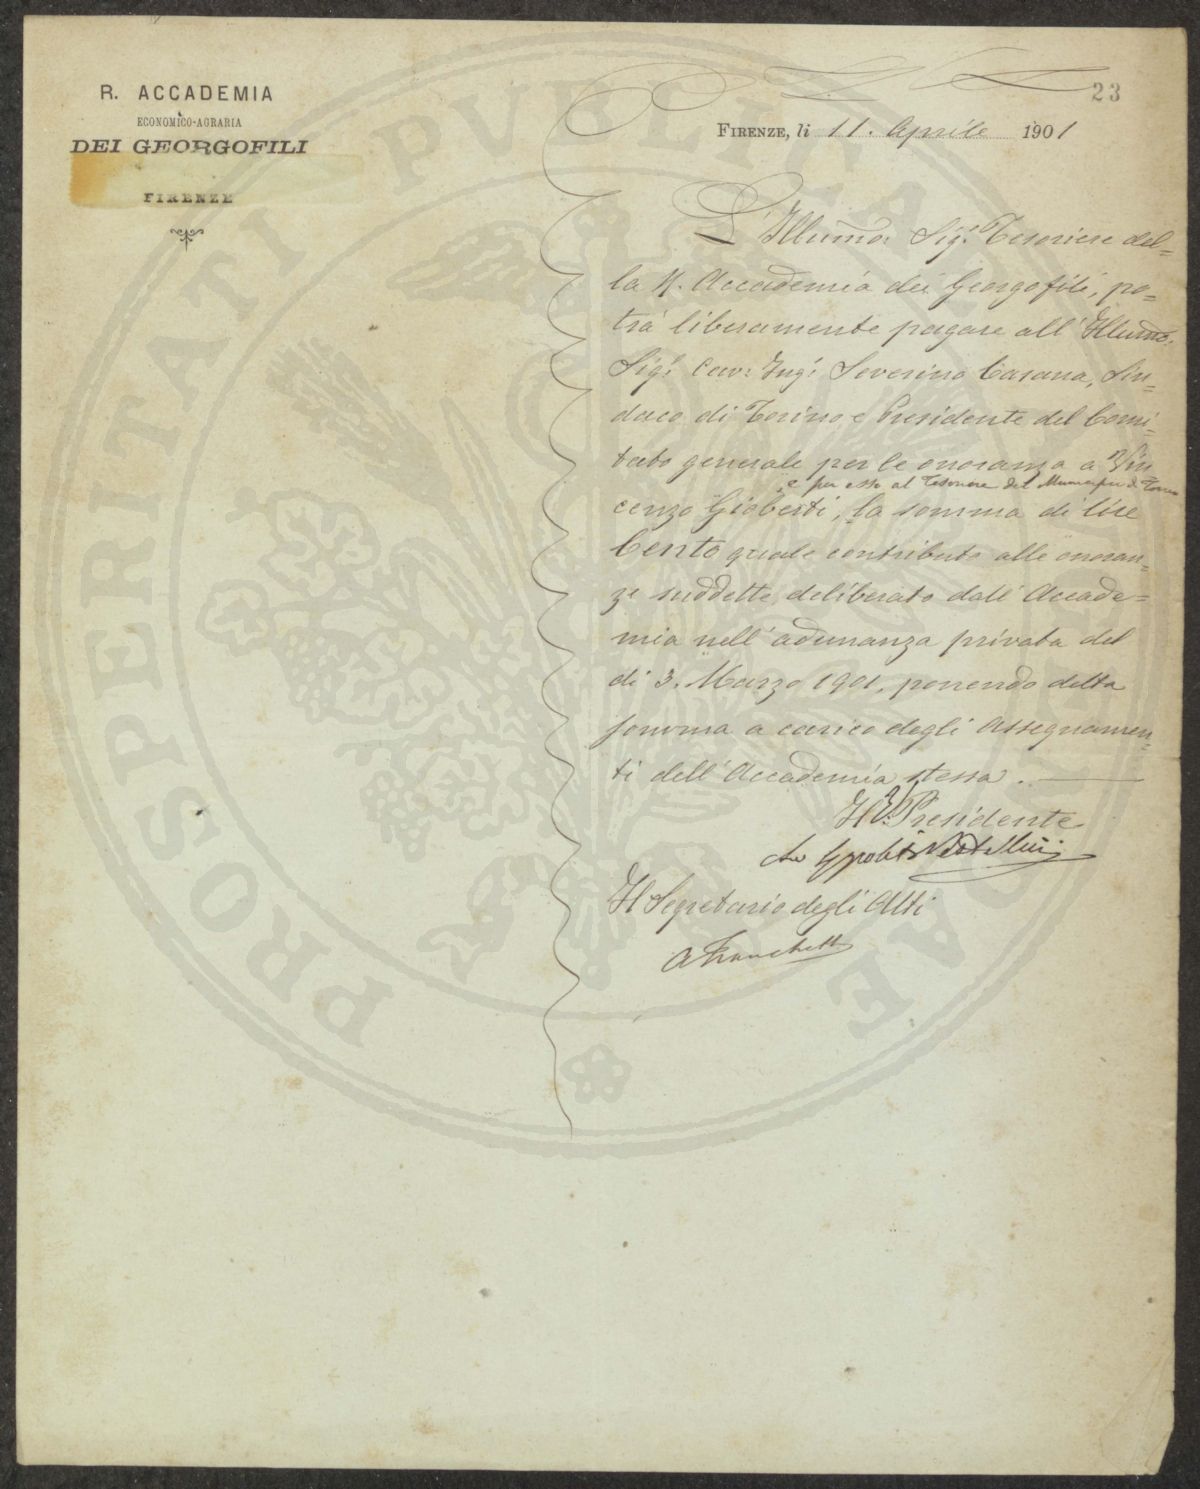 23
R. ACCADEMIA
ECONOMICO-AGRARIA
DEI GEORGOFILI
FIRENZE
FIRENZE, li 11. Aprile 1901
L'Illumo: Sigr. Tesoriere del=
la R. Accademia dei Georgofili, po=
trà liberamente pagare all'Illumo:
Sigr. Cav: Ingr. Severino Casana, Sin=
daco di Torino e Presidente del Comi=
tato generale per le onoranza a Vin=
e per esso al Tesoriere del Municipio di Torino
cenzo Gioberti, la somma di lire
Cento quale contributo alle onoran=
ze suddette, deliberato dall'Accade=
mia nell'adunanza privata del
di 3. Marzo 1901, ponendo detta
somma a carico degli assegnamen=
ti dell'Accademia stessa.
Il V. Presidente
Il Segretario degli Atti
A Franchetti
PROSPERITATI PVBLICAE AVGENDAE